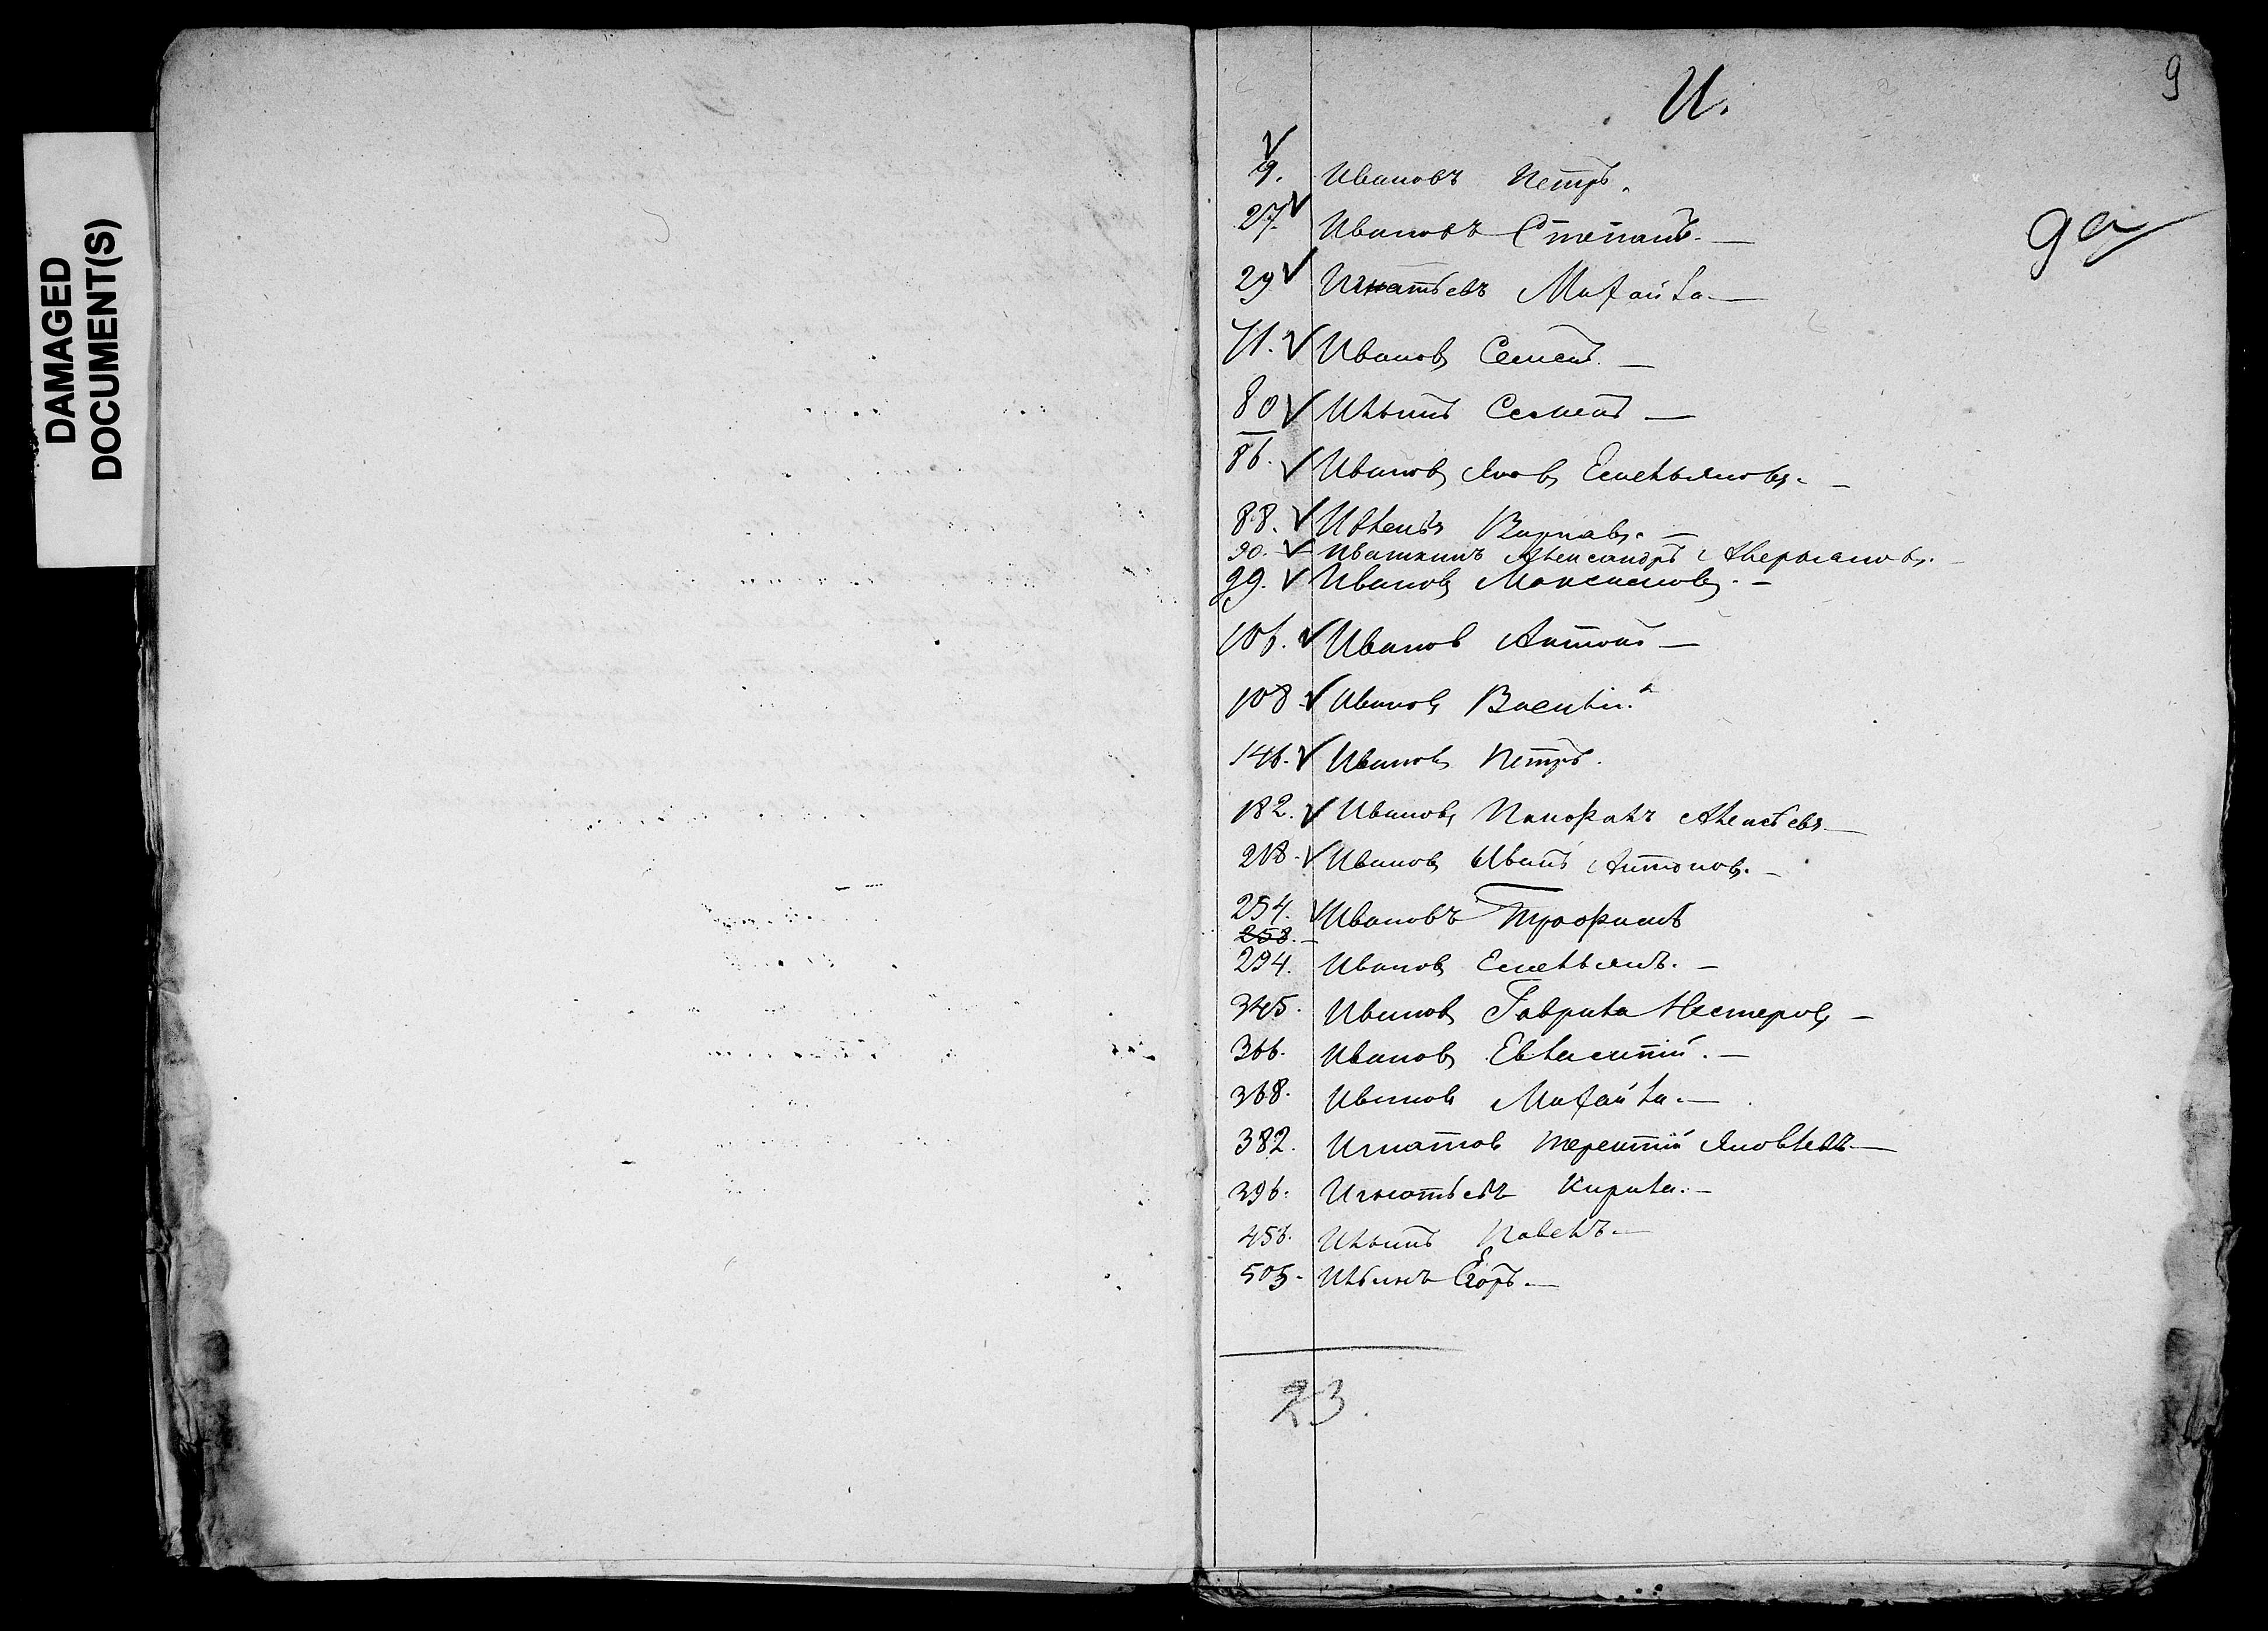 DAMAGED
DOCUMENT(S)
9
И.
9. Ивановъ Петръ.
27 Ивановъ Степанъ. —
9а
29 Игнатьевъ Михайла —
71. Ивановъ Семенъ. —
80 Ильинъ Семенъ —
86. Ивановъ Яковъ Емельяновъ. —
88. Варнавъ. —
90. — Ивашкинъ Александръ Аверьяновъ. —
99. Ивановъ Максимовъ. —
106. Ивановъ Антонъ —
108. Ивановъ
146. Ивановъ Петръ.
182. Ивановъ Панфилъ Алексѣевъ —
218. Ивановъ Иванъ Антоновъ. —
254. Ивановъ Трофимъ
258. —
294. Ивановъ Емельянъ. —
345. Ивановъ Гаврила Нестеровъ —
366. Ивановъ Евлампій. —
368. Ивановъ Михайла. —
382. Игнатовъ Терентій Яковлевъ —
396. Игнатьевъ Кирила. —
456. Ильинъ Павелъ. —
505. Ильинъ Егоръ. —
23.